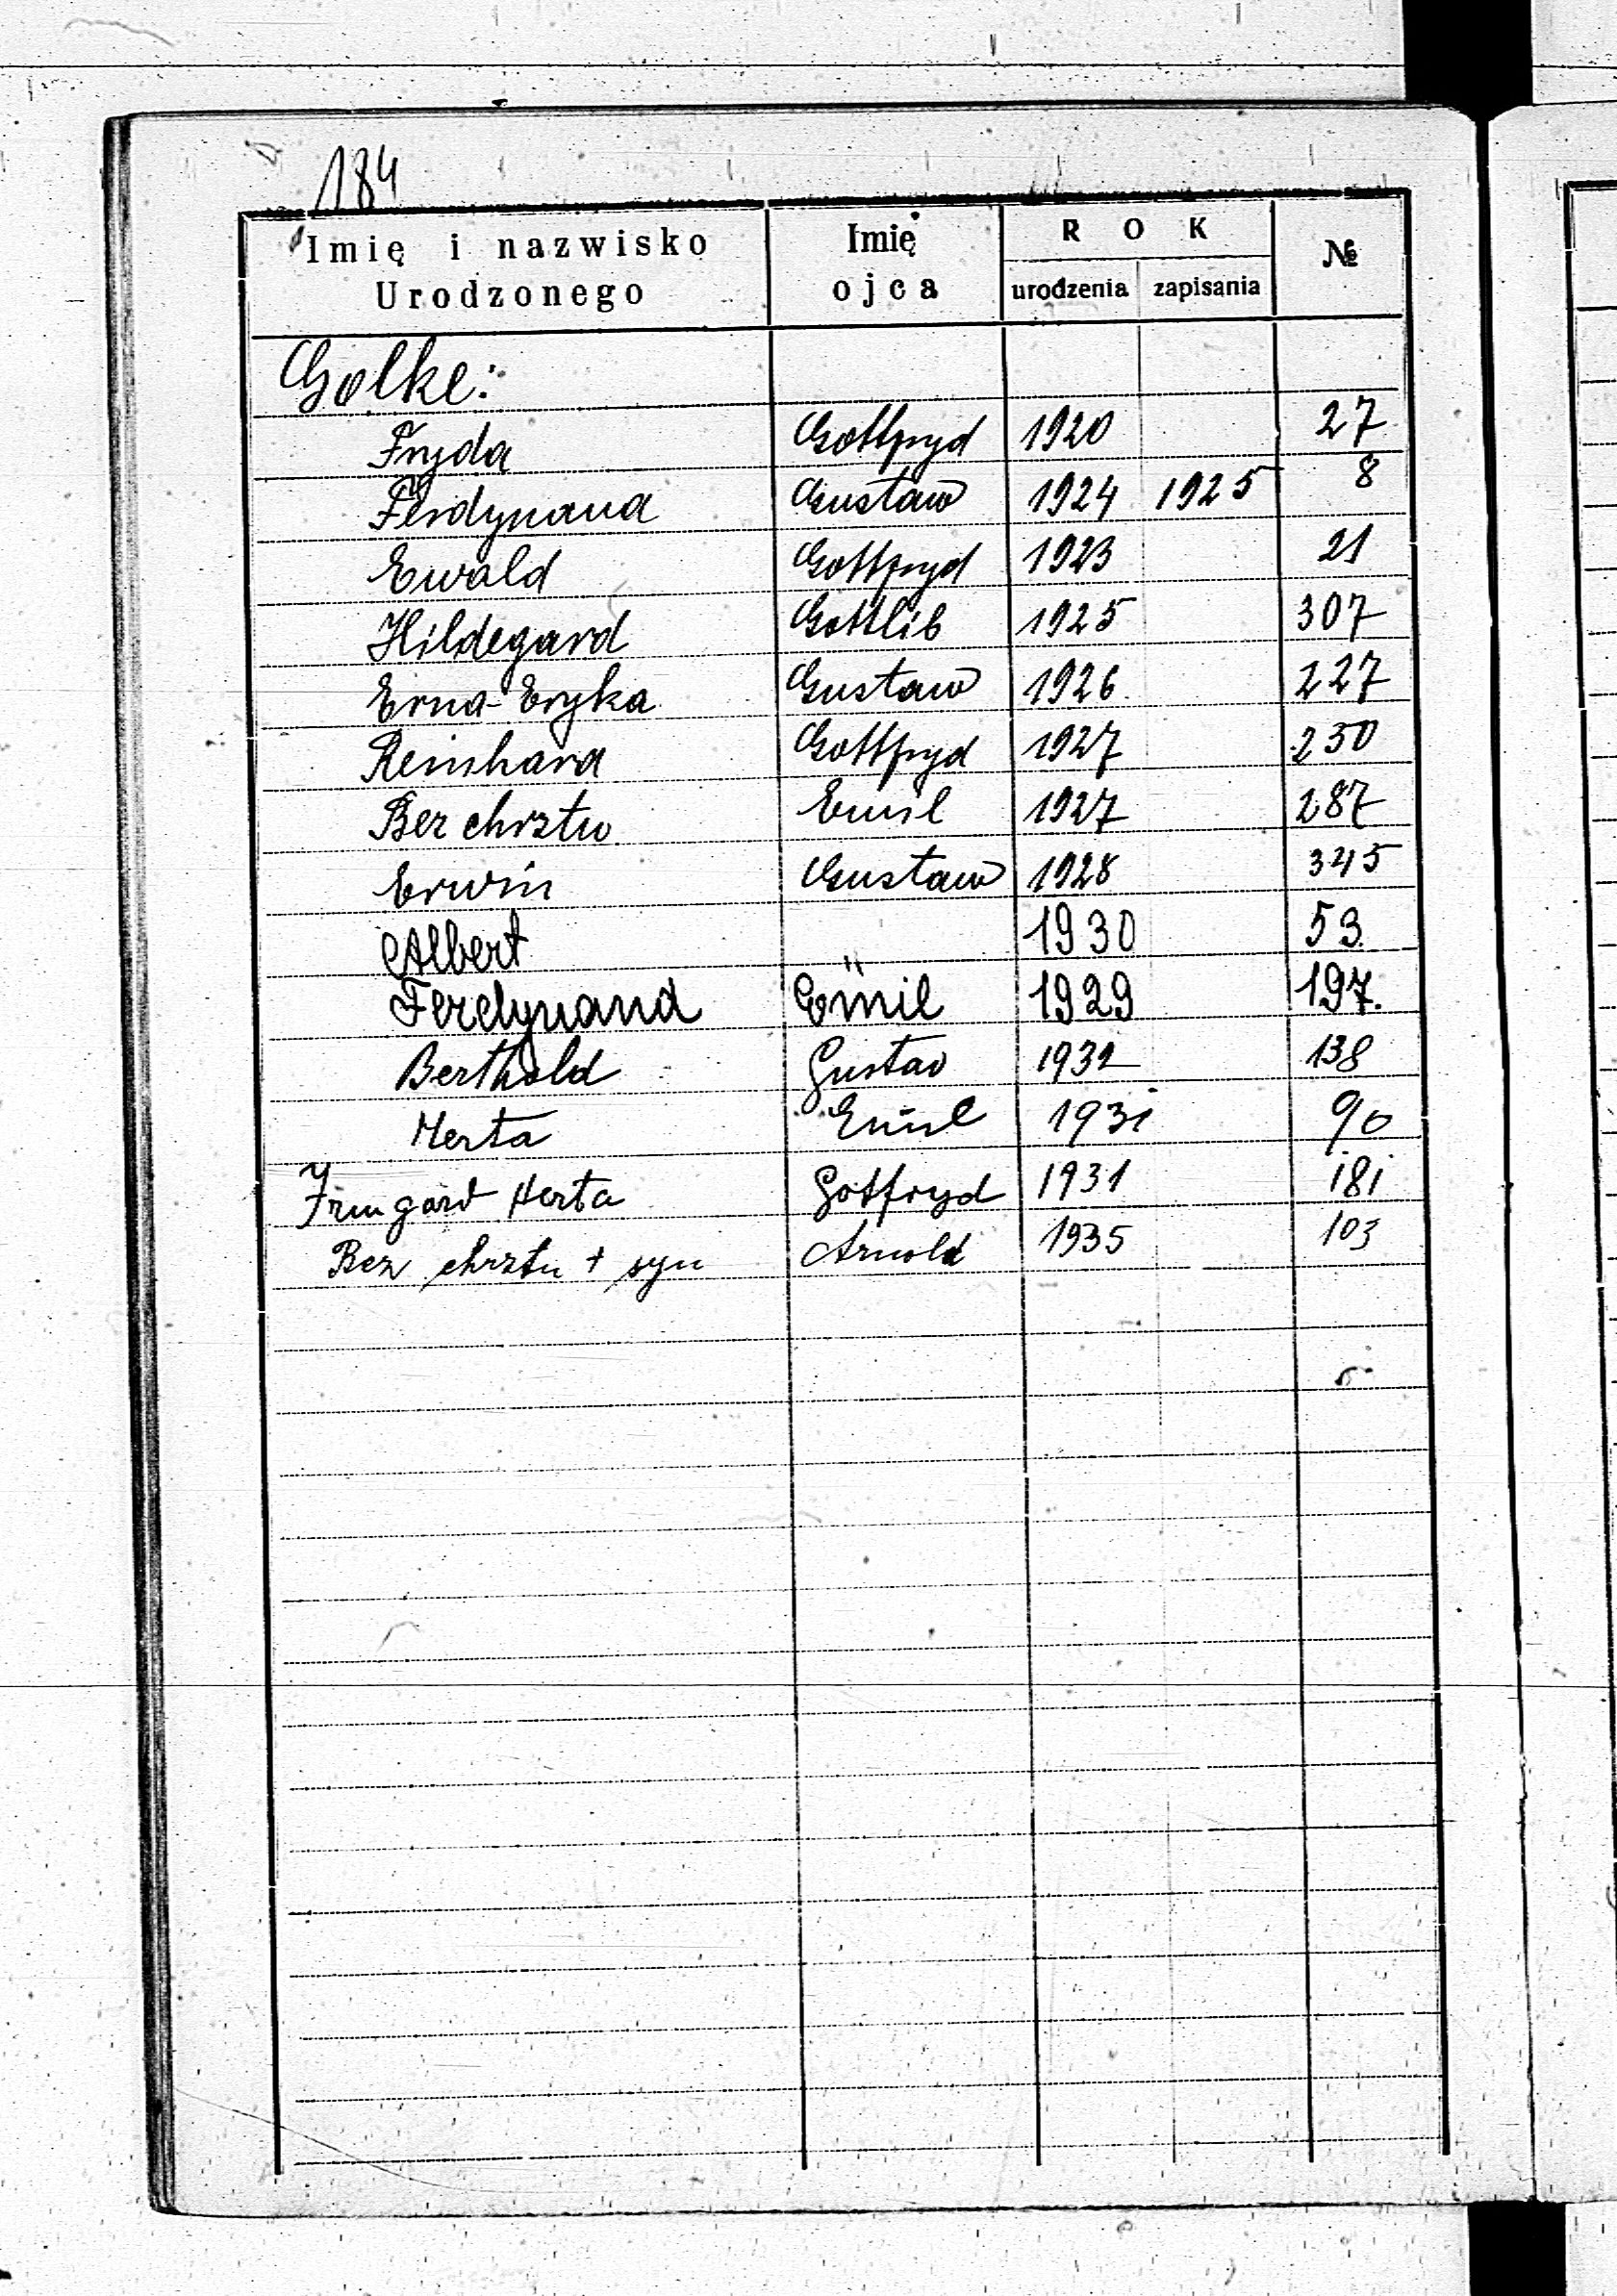 184
Imię i nazwisko Urodzonego Imię ojca ROK urodzenia zapisania №
Golke:
Fryda Gottfryd 1920 27
Ferdynand Gustaw 1924 1925 8
Ewald Gottfryd 1923 21
Hildegard Gottlib 1925 307
Erna-Eryka Gustaw 1926 227
Reinhard Gottfryd 1927 230
Bez chrztu Emil 1927 287
Erwin Gustaw 1928 345
Albert " 1930 53
Ferdynand Emil 1929 197.
Berthold Gustav 1932 138
Herta Emil 1931 90
Irmgard Herta Gotfryd 1931 181
Bez chrztu + syn Arnold 1935 103